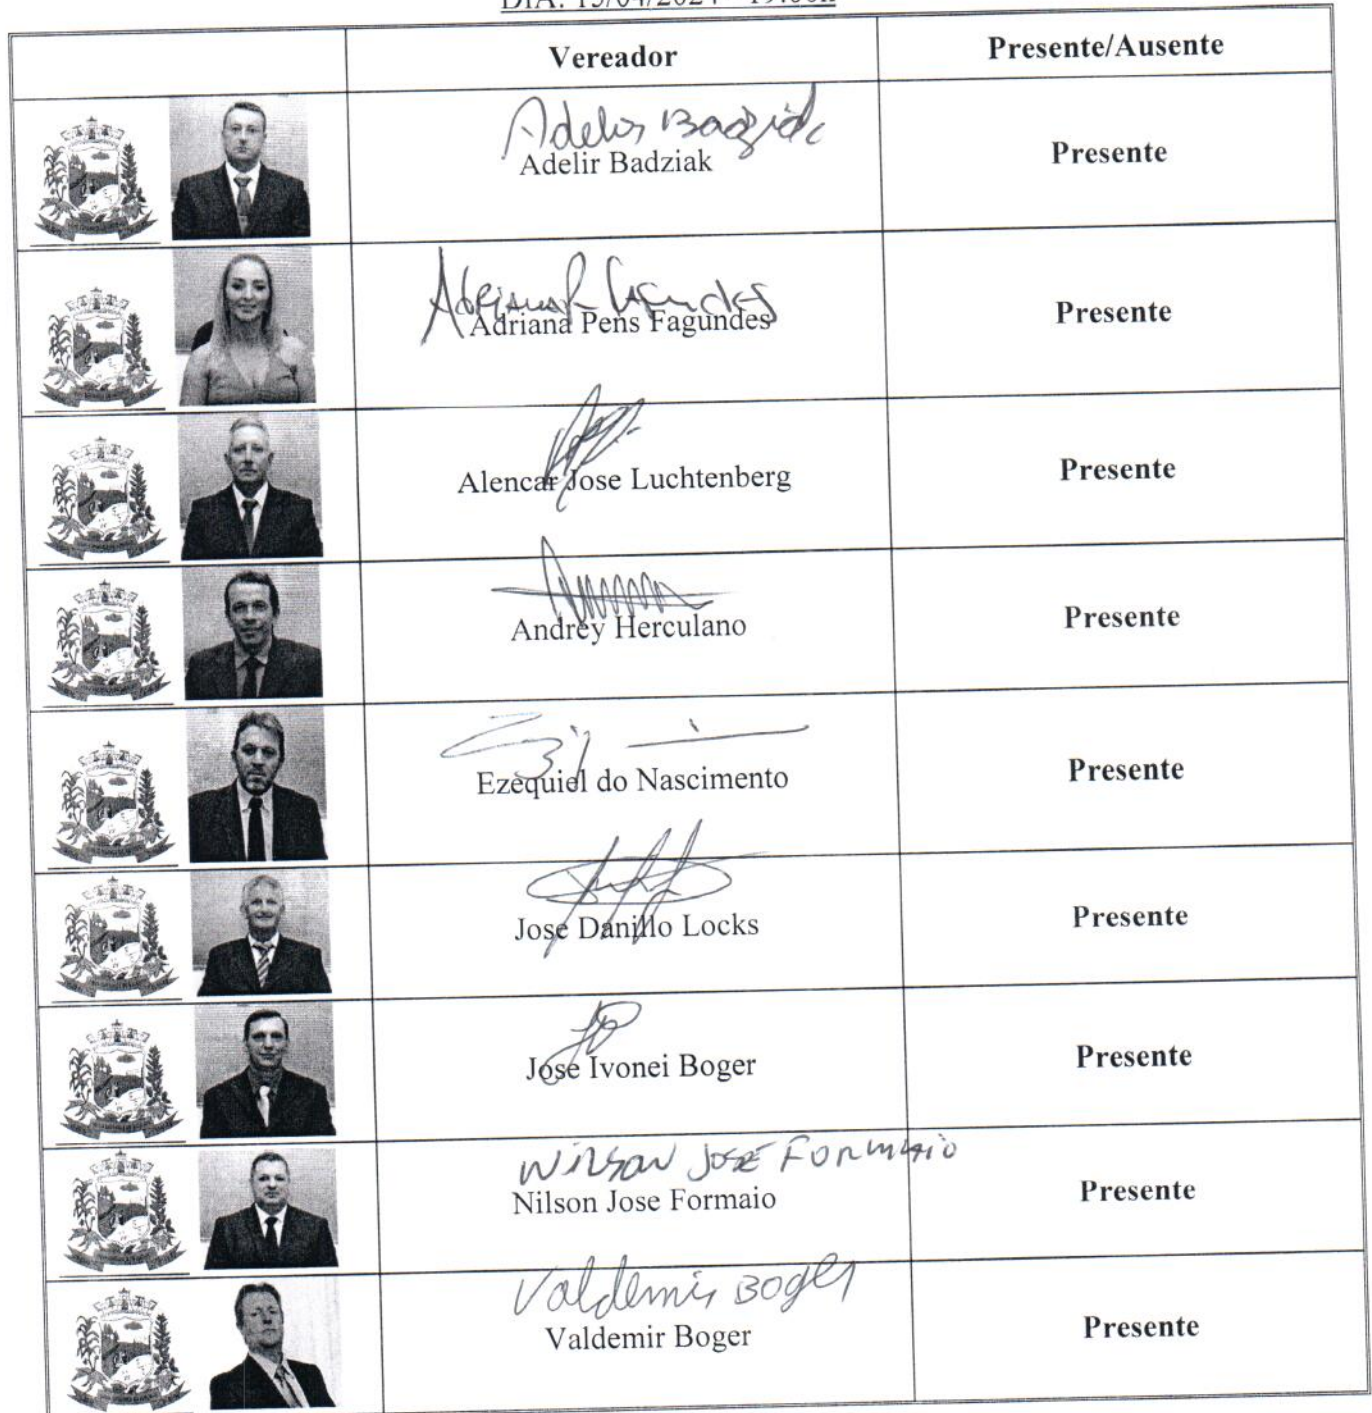 DIA: 15/04/2024 - 19:00h
Vereador Presente/Ausente
Adelir Badziak
Adelir Badziak Presente
Adriana P Fagundes
Adriana Pens Fagundes Presente
Alencar Jose Luchtenberg Presente
Andrey Herculano Presente
Ezequiel do Nascimento Presente
Jose Danillo Locks Presente
Jose Ivonei Boger Presente
Nilson José Formaio
Nilson Jose Formaio Presente
Valdemir Boger
Valdemir Boger Presente